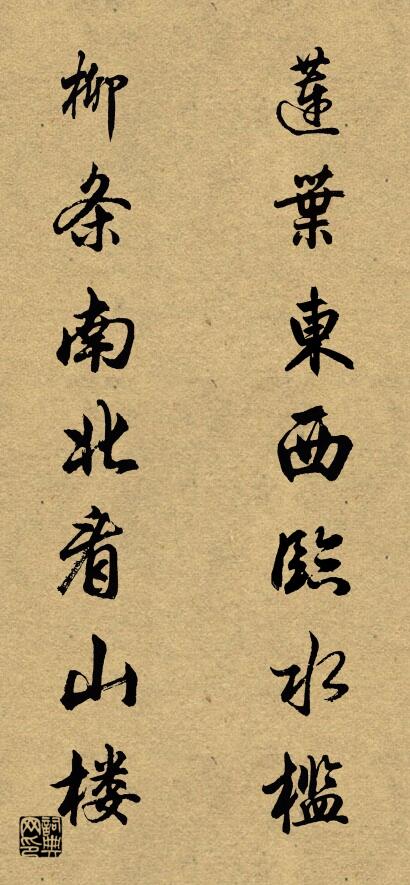 蓮葉東西臨水檻
柳条南北看山楼
詞典网印